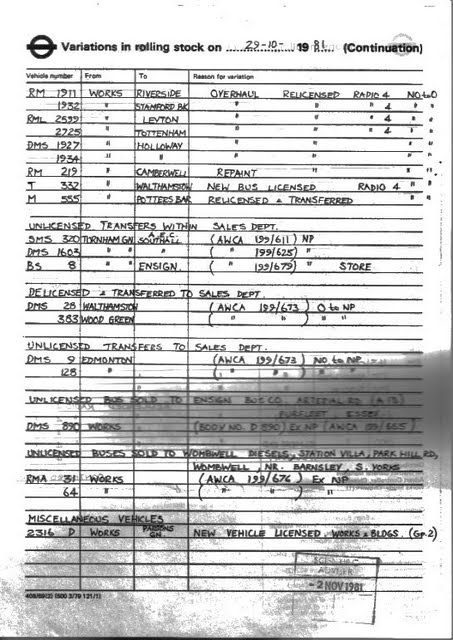 Variations in rolling stock on 29-10- 1981. (Continuation)
Vehicle number From To Reason for variation
RM 1911 WORKS RIVERSIDE OVERHAUL RELICENSED RADIO 4 NO to O
1932 " STAMFORD BK " " " 4 " "
RML 2599 " LEYTON " " " 4 " "
2725 " TOTTENHAM " " " 4 " "
DMS 1927 " HOLLOWAY " " " "
1934 " " " " " "
RM 219 " CAMBERWELL REPAINT " "
T 332 " WALTHAMSTOW NEW BUS LICENSED RADIO 4 " "
M 555 " POTTERS BAR RELICENSED & TRANSFERRED " "
UNLICENSED TRANSFERS WITHIN SALES DEPT.
SMS 320 TURNHAM GN A.E.C. SOUTHALL (AWCA 199/611) NP
DMS 1603 " " " ( " 199/625) "
BS 8 " " ENSIGN. ( " 199/679) " STORE
DELICENSED & TRANSFERRED TO SALES DEPT.
DMS 28 WALTHAMSTOW (AWCA 199/673) O to NP
383 WOOD GREEN ( " " ) " "
UNLICENSED TRANSFERS TO SALES DEPT.
DMS 9 EDMONTON (AWCA 199/673) NO. to NP.
128 " ( " " ) " "
UNLICENSED BUS SOLD TO ENSIGN BUS CO. ARTERIAL RD (A 13)
PURFLEET, ESSEX
DMS 890 WORKS (BODY NO. D 890) EX NP (AWCA 199/665)
UNLICENSED BUSES SOLD TO WOMBWELL DIESELS, STATION VILLA, PARK HILL RD,
WOMBWELL, NR. BARNSLEY, S. YORKS
RMA 31 WORKS (AWCA 199/676) EX NP
64 " ( " " ) " "
MISCELLANEOUS VEHICLES
2316 D WORKS PARSONS GN. NEW VEHICLE LICENSED. WORKS & BLDGS. (Gp.2)
-2 NOV 1981